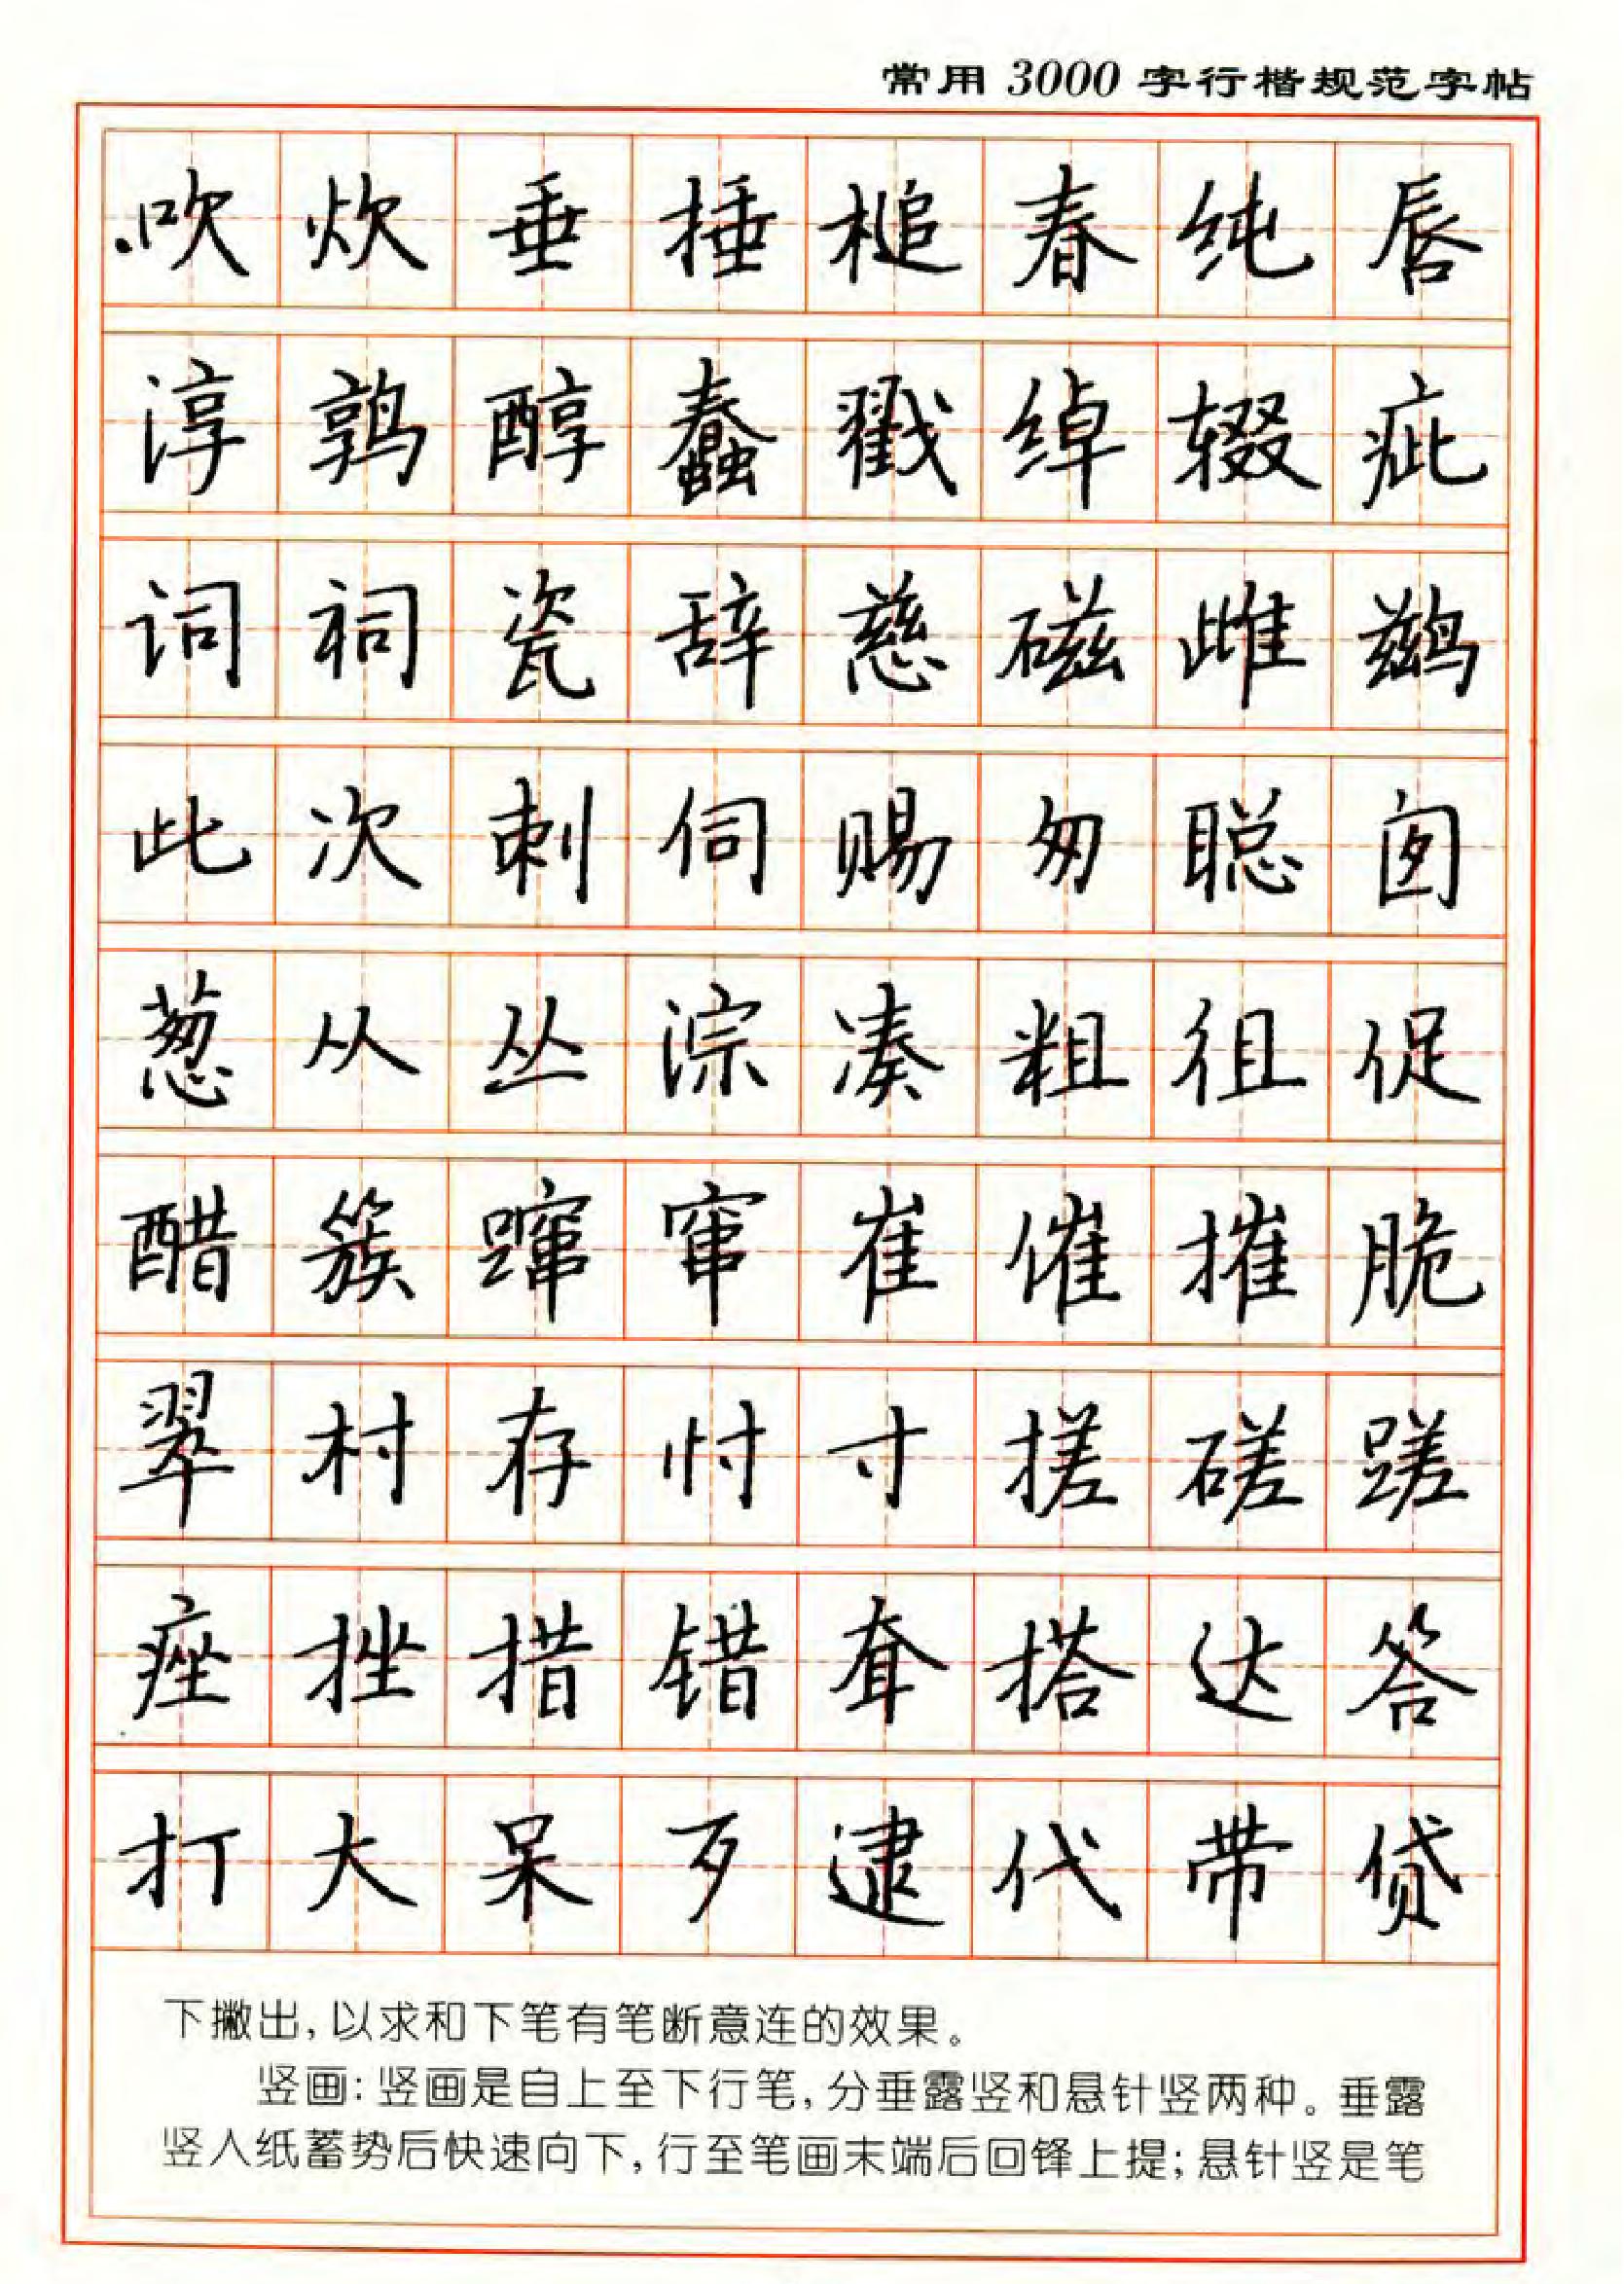 常用3000字行楷规范字帖
吹炊垂捶槌春纯唇
淳鹑醇蠢戳绰辍疵
词祠瓷辞慈磁雌鹚
此次刺伺赐匆聪囱
葱从丛淙凑粗徂促
醋簇蹿窜崔催摧脆
翠村存忖寸搓磋蹉
痤挫措错耷搭达答
打大呆歹逮代带贷
下撇出,以求和下笔有笔断意连的效果。
竖画:竖画是自上至下行笔,分垂露竖和悬针竖两种。垂露
竖入纸蓄势后快速向下,行至笔画末端后回锋上提;悬针竖是笔